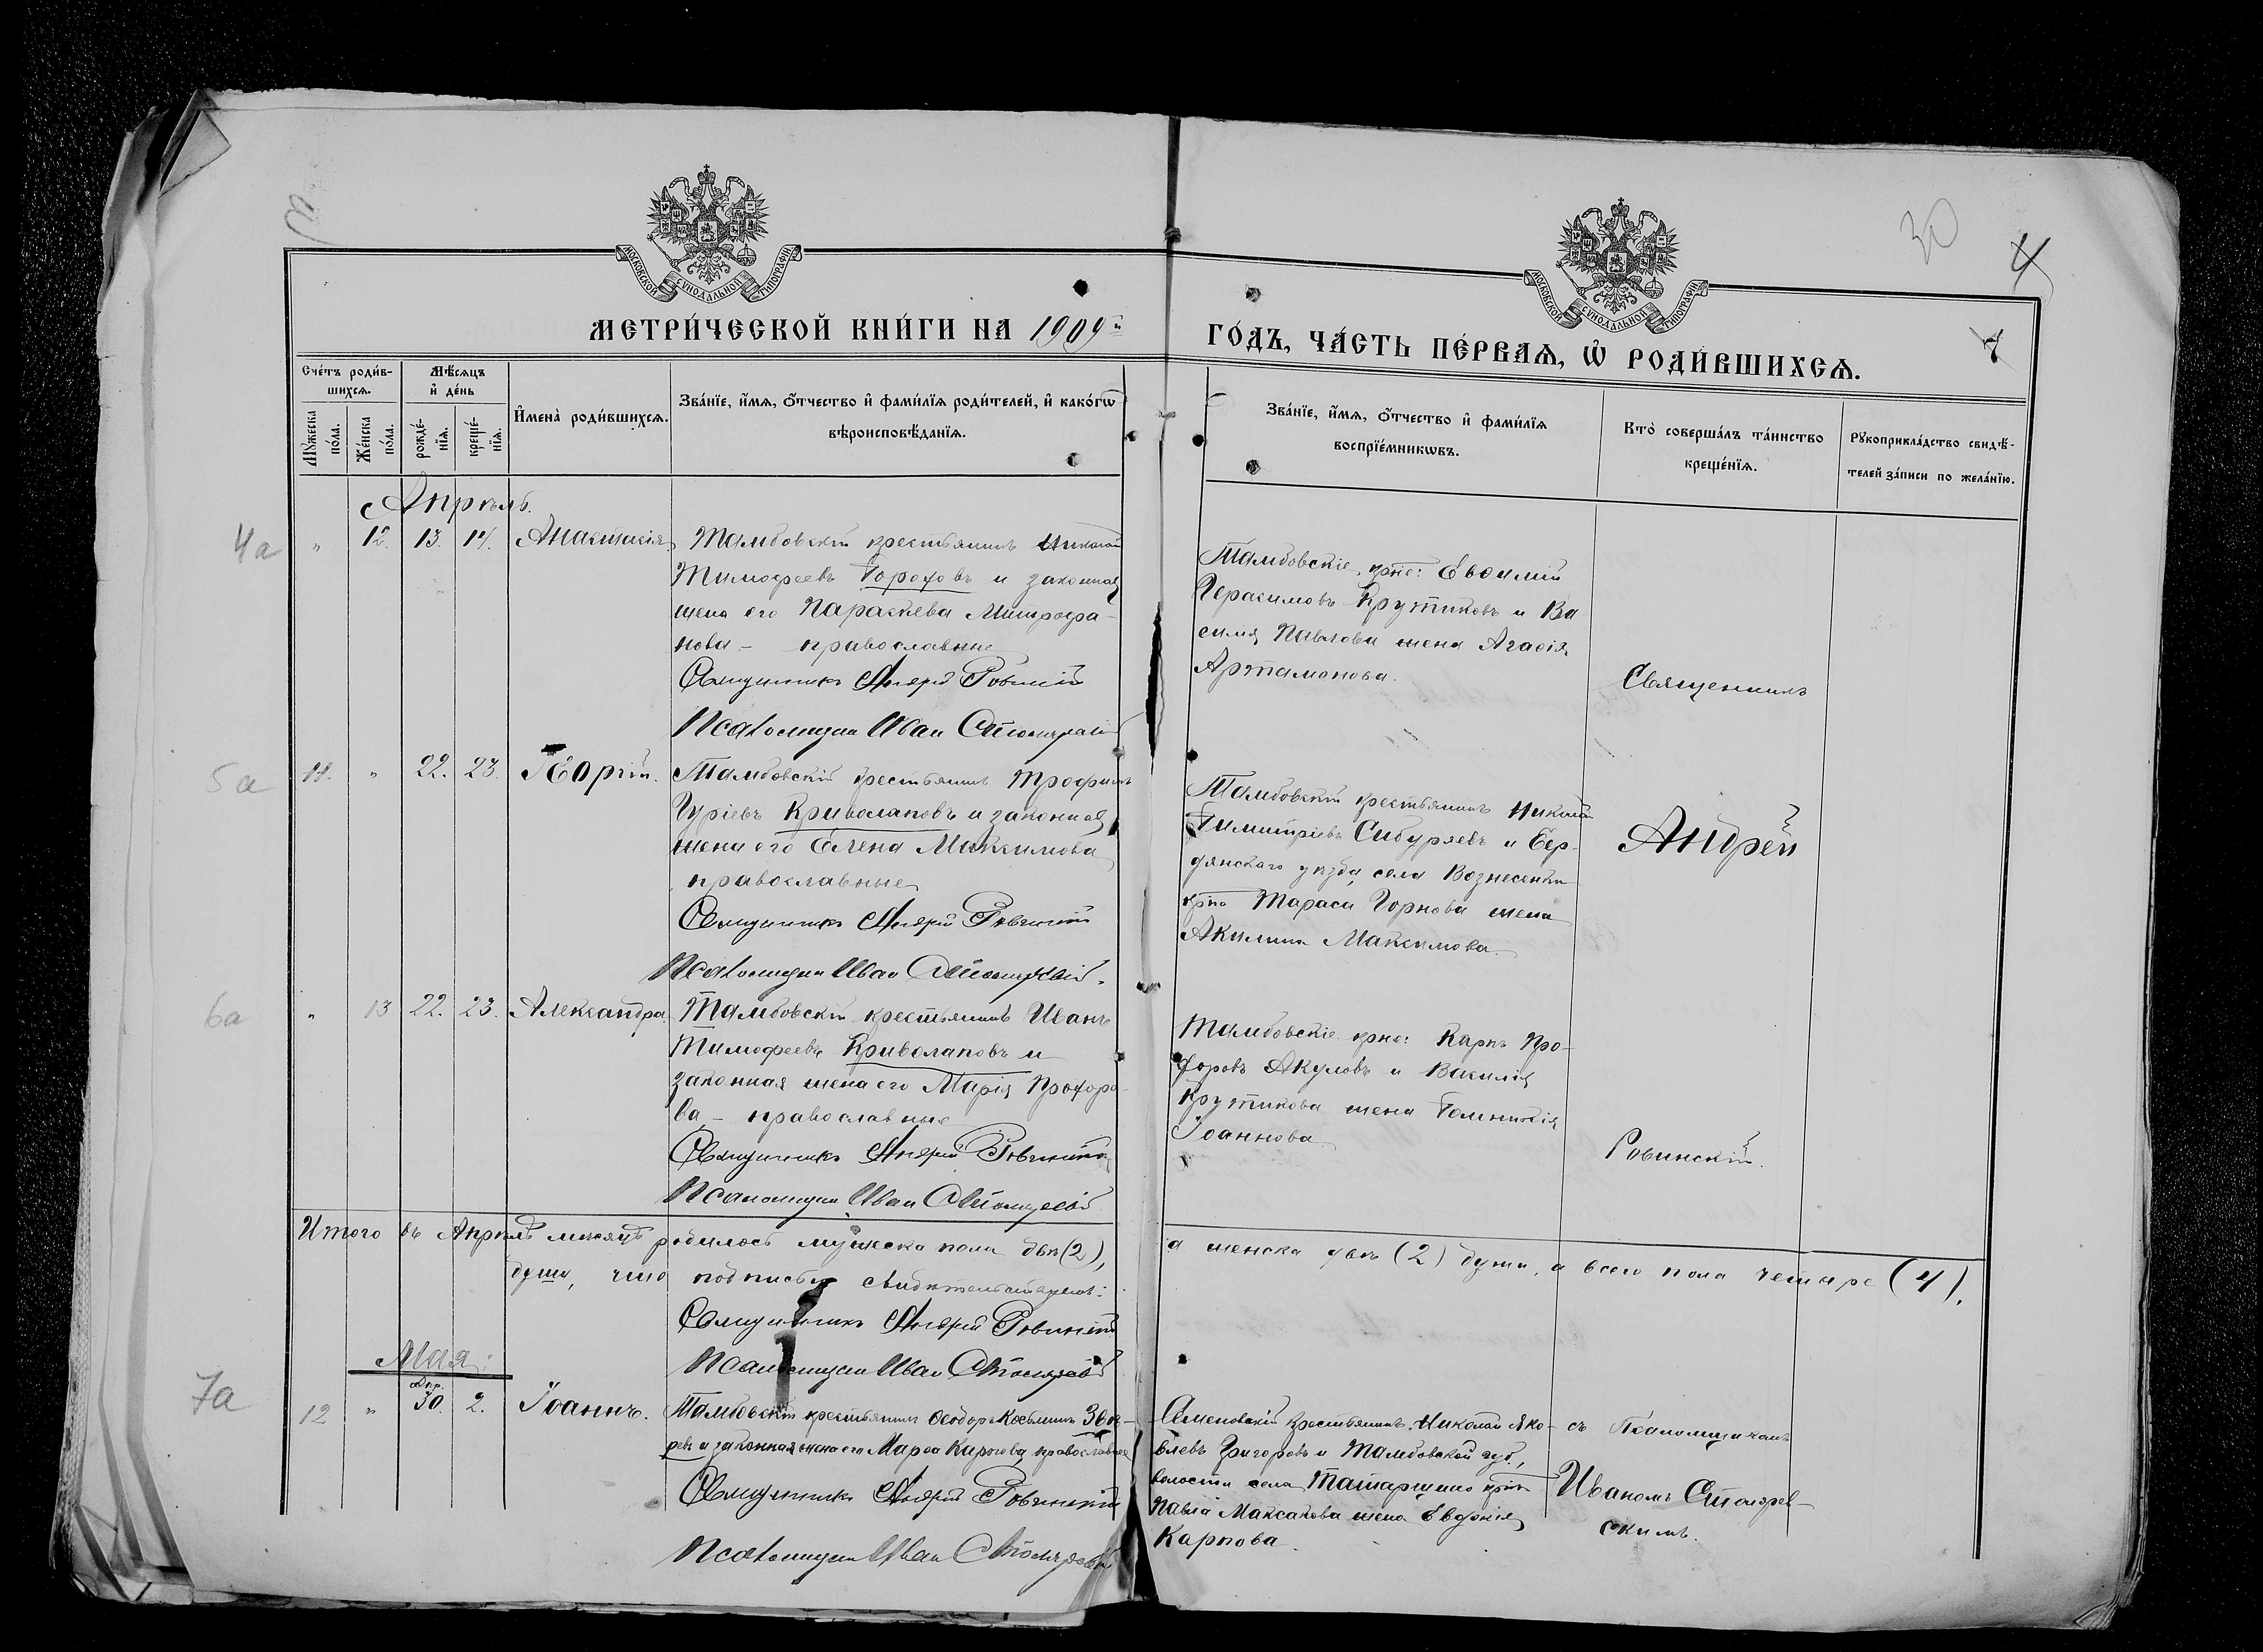 30
4
МОСКОВСКОЙ СѴНОДАЛЬНОЙ ТИПОГРАФІИ
МОСКОВСКОЙ СѴНОДАЛЬНОЙ ТИПОГРАФІИ
МЕТРИ́ЧЕСКОЙ КНИ́ГИ НА 1909й
ГО́ДЪ, ЧА́СТЬ ПЕ́РВАѦ, Ѡ҆ РОДИ́ВШИХСѦ.
Сче́тъ роди́в-
шихсѧ.
Мѣ́сѧцъ
и҆ де́нь
Мꙋ́жеска
по́ла.
Же́нска
по́ла.
рожде́-
нїѧ.
креще́-
нїѧ.
И҆мена̀ роди́вшихсѧ.
Зва́нїе, и҆́мѧ, ѻ҆́тчество и҆ фами́лїѧ роди́телей, и҆ како́гѡ
вѣроисповѣ́данїѧ.
Зва́нїе, и҆́мѧ, ѻ҆́тчество и҆ фами́лїѧ
воспрїе́мникѡвъ.
Кто̀ соверша́лъ та́инство
креще́нїѧ.
Рꙋкоприкла́дство свидѣ́-
телей за́писи по жела́нїю.
Апрѣль.
4а
" 12. 13. 14. Анастасія
Тамбовскій крестьянинъ Николай
Тимофеевъ Гороховъ и законная
жена его Параскева Митрофа-
нова - православные
Священникъ Андрей Ровинскій
Псаломщик Иван Столяревскій
Тамбовскіе, крне: Евѳимій
Герасимовъ Крутиковъ и Ва
силія Павлова жена Агаѳія
Артамонова.
Священникъ
5а
11. " 22. 23. Георгій.
Тамбовскій крестьянинъ Трофимъ
Гуріевъ Криволаповъ и законная
жена его Елена Максимова
православные
Священникъ Андрей Ровинскій
Псаломщик Иван Столяревскій.
Тамбовскій крестьянинъ Николай
Димитріевъ Сибуряевъ и Бер-
дянскаго уѣзда села Вознесенки
крна Тараси Горнова жена
Акилина Максимова.
Андрей
6а
" 13 22. 23. Александра
Тамбовскій крестьянинъ Иванъ
Тимофеевъ Криволаповъ и
законная жена его Марія Прохоро-
ва - православные
Священникъ Андрей Ровинскій
Псаломщик Иван Столяревскій
Тамбовскіе крне: Карпъ Про-
форовъ Акуловъ и Василія
Крутикова жена Домникія
Іоаннова
Ровинскій.
Итого въ Апрѣлѣ мѣсяцѣ родилось мужеска пола двѣ (2),
а женска двѣ (2) души, а всего пола четыре (4).
души, что подписью свидѣтельствуемъ:
Священникъ Андрей Ровинскій
Псаломщик Иван Столяревскій
Мая.
7а
12 " Апр. 30. 2. Іоаннъ.
Тамбовскій крестьянинъ Ѳеодоръ Косьминъ Звѣ-
ревъ и законная жена его Марѳа Карпова православные
Священникъ Андрей Ровинскій
Псаломщик Иван Столяревскій
Семеновскій крестьянинъ Николай Яко-
влевъ Григоровъ и Тамбовской губ.,
волости села Татарщино крна
Павла Максакова жена Евфимія
Карпова.
съ Псаломщикомъ
Иваномъ Столярев-
скимъ.